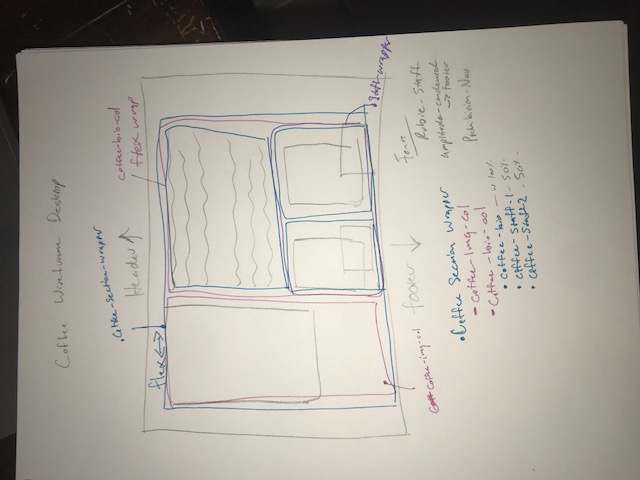 Coffee Wireframe Desktop
.Coffee-section-wrapper
coffee-bio-col
Header ↑
flex wrap
flex ↔
staff-wrapper
coffee-img-col
footer ↓
Robie - Staff
amplitude-condensed
→ footer
Prohibition - Nav
• Coffee Section Wrapper
- coffee-img-col
- Coffee-bio-col
• coffee-bio — w 100%
• coffee-Staff-1 - 50%
• coffee-Staff-2 - 50%